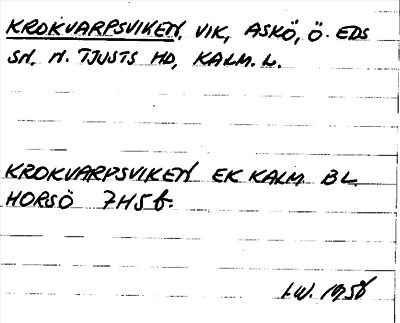 KROKVARPSVIKEN, VIK, ASKÖ, Ö. EDS
SN, N. TJUSTS HD, KALM. L.
KROKVARPSVIKEN EK KALM. BL.
HORSÖ 7H5f.
I.W. 1958